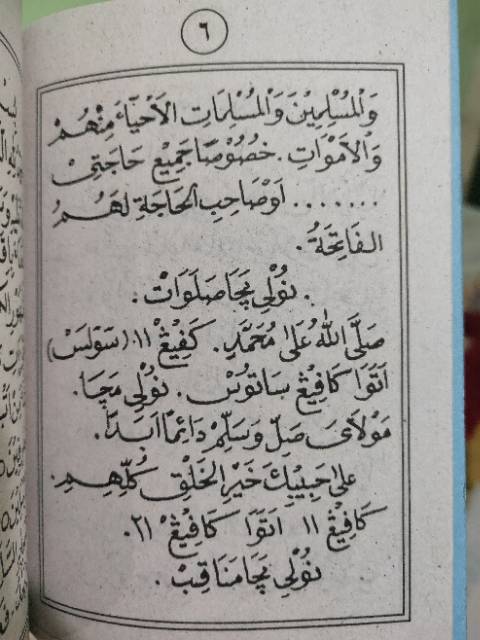 ٦
وَالْمُسْلِمِيْنَ وَالْمُسْلِمَاتِ الْأَحْيَآءِ مِنْهُمْ
وَالْاَمْوَاتِ . خُصُوْصًا جَمِيْعِ حَاجَتِىْ
....... اَوْصَاحِبِ الْحَاجَةِ لَهُمُ
الْفَاتِحَةُ .
. نُوْلِى مَچَا صَلَوَاتْ :
صَلَّى اللّٰهُ عَلَى مُحَمَّدٍ . كَڤِيْڠْ ١١. (سَوَلَسْ)
اَتَوَا كَاڤِيْڠْ سَاتُوْسْ . نُوْلِى مَچَا .
مَوْلَايَ صَلِّ وَسَلِّمْ دَائِمًا اَبَدًا .
عَلَى حَبِيْبِكَ خَيْرِ الْخَلْقِ كُلِّهِمِ .
كَاڤِيْڠْ ١١ اَتَوَا كَاڤِيْڠْ ٢١.
نُوْلِى مَچَا مَنَاقِبْ .